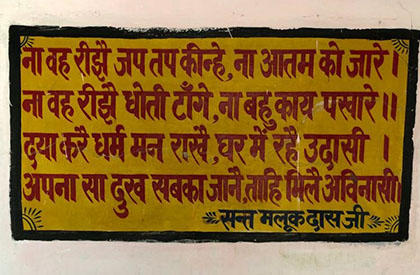 ना वह रीझै जप तप कीन्हे, ना आतम को जारे ।
ना वह रीझै धोती टाँगे, ना बहु काय पखारे ।।
दया करै धर्म मन राखै, घर में रहै उदासी ।
अपना सा दुख सबका जानै, ताहि मिलै अविनासी।
सन्त मलूकदास जी